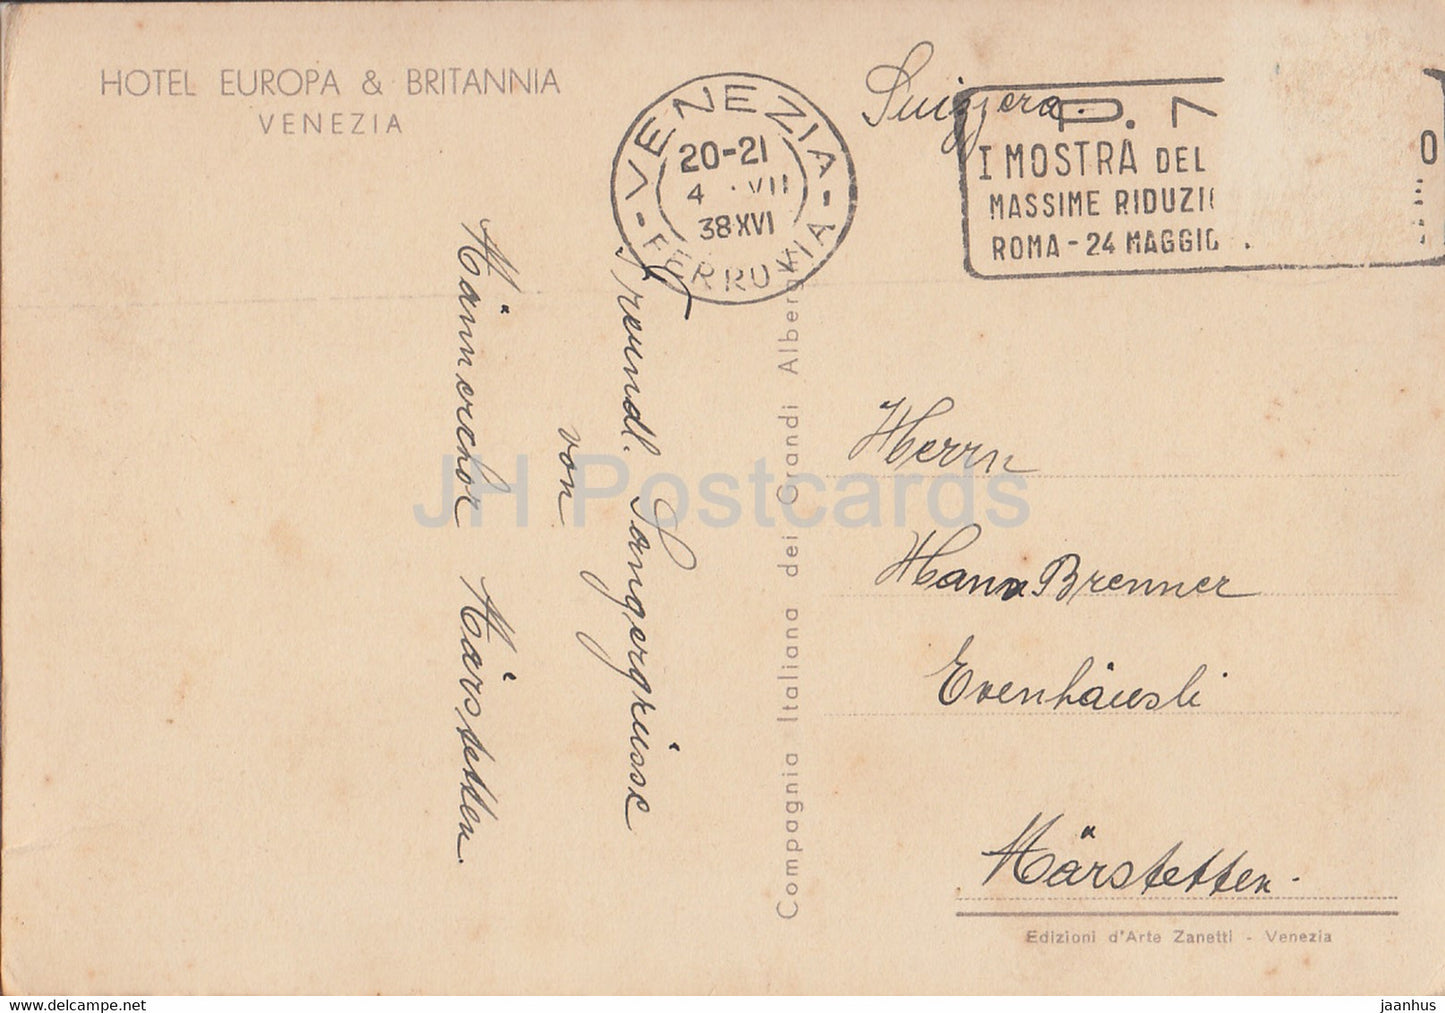 HOTEL EUROPA & BRITANNIA
VENEZIA
VENEZIA
20-21
4 · VII
38 XVI
FERROVIA
Suizzera.
P. N
I MOSTRA DEL
O
MASSIME RIDUZI
ROMA - 24 MAGGIO
Freundl. Sangergrüsse
von
Männerchor Märstetten.
Compagnia Italiana dei Grandi Alberghi
Herrn
Hans Brenner
Evenhäusli
Märstetten.
Edizioni d'Arte Zanetti - Venezia
JH Postcards
www.delcampe.net
jaanhus